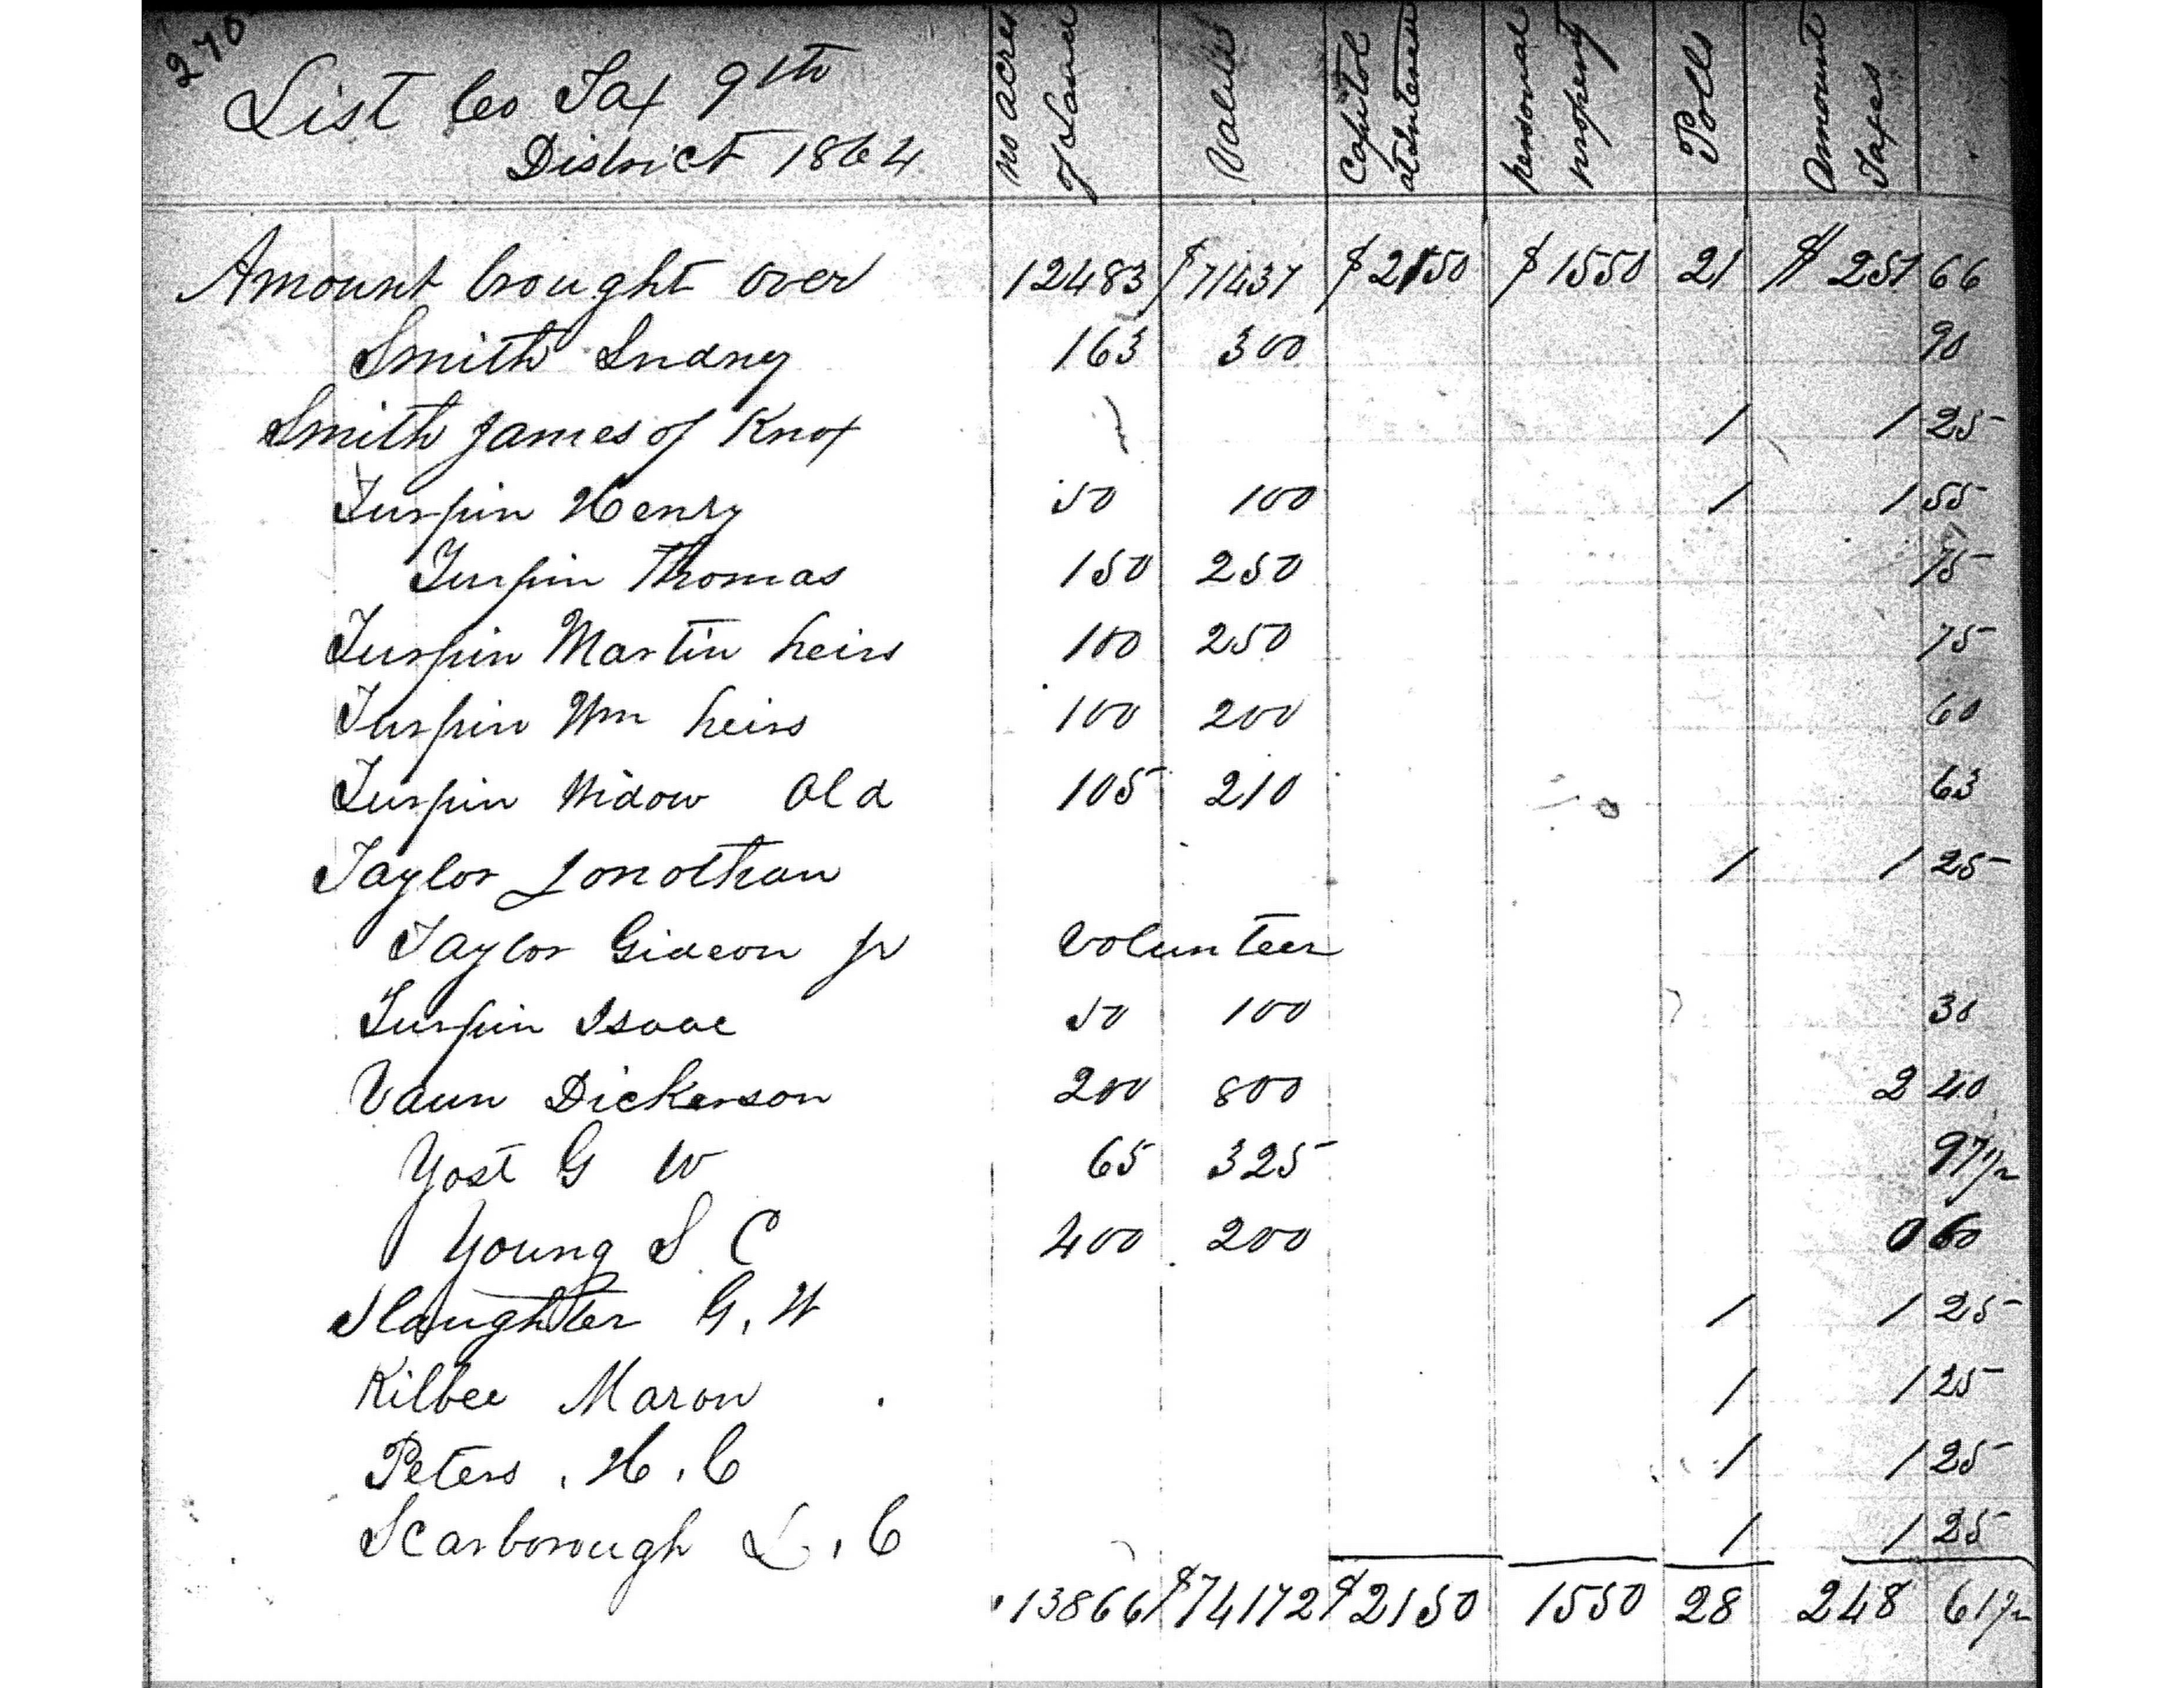 270
List Co Tax 9th
District 1864
no acres of Land
Values
Capitol at Interest
personal property
Polls
Amount Taxes
Amount brought over 12483 $71437 $2150 $1550 21 $251 66
Smith Sndny 163 300 90
Smith James of Knox 1 1 25
Turpin Henry 50 100 1 1 55
Turpin Thomas 150 250 75
Turpin Martin heirs 100 250 75
Turpin Wm heirs 100 200 60
Turpin Widow Old 105 210 63
Taylor Jonothan 1 1 25
Taylor Gideon Jr Volunteer
Turpin Isaac 50 100 30
Vaun Dickerson 200 800 2 40
Yost G W 65 325 97 1/2
Young S C 400 200 0 60
Slaughter G. W 1 1 25
Kilbee Maron 1 1 25
Peters . H . C 1 1 25
Scarborough L . C 1 1 25
13866 $74172 $2150 1550 28 248 61 1/2